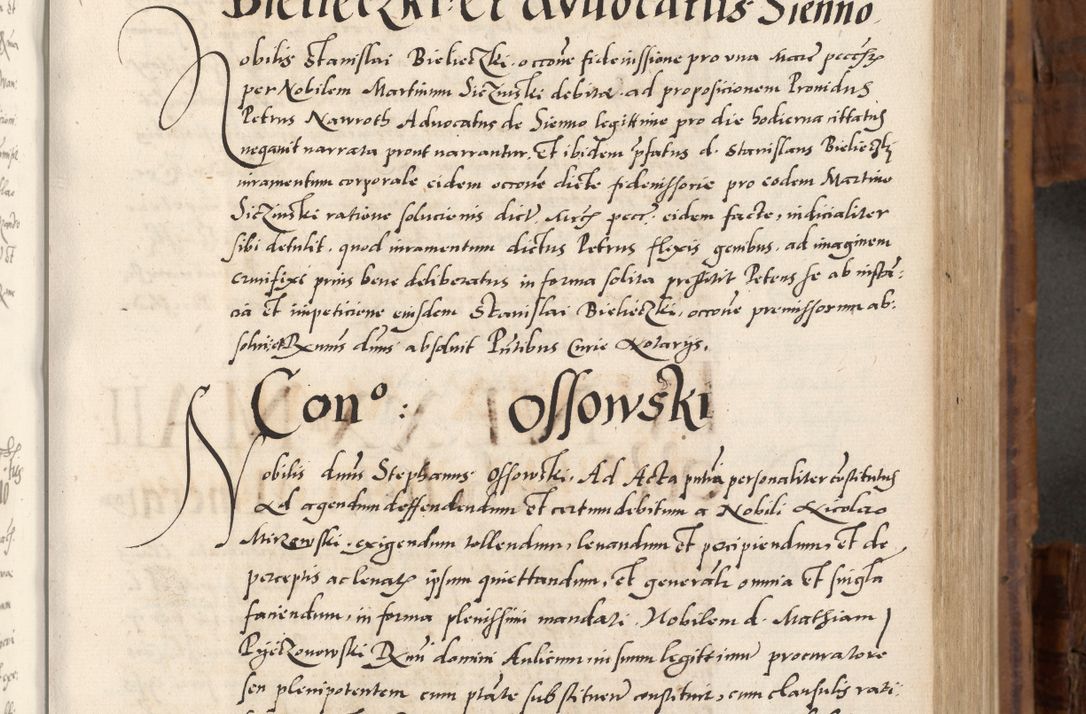 Bielieczki et Advocatus Sienno
Nobilis Stanislai Bielieczki occone fideiussione pro una Marc pecc
per Nobilem Martinum Siczinski debitae ad proposicionem Providus
Petrus Nawroth Advocatus de Sienno legittime pro die hodierna cittatus
negavit narrata prout narrantur. Et ibidem pfatus d. Stanislaus Bielieczki
iuramentum corporale eidem occone dicte fideiussorie pro eodem Martino
Siczinski ratione solucionis dict March pecc eidem facte, iudicialiter
sibi detulit. quod iuramentum dictus Petrus flexis genibus ad imaginem
crucifixi prius bene deliberatus in forma solita prestitit Petens se ab instan:
cia et impeticione eiusdem Stanislai Bielieczki, occone premissorum ab:
solvi et Rxmus dnus absolvit Pntibus Curie Notarijs.
Con⁰ : Ossowski
Nobilis dnus Stephanus Ossowski, Ad Acta pntia personaliter constitutus
Ad agendum deffendendum et certum debitum a Nobili Nicolao
Mirzewski exigendum tollendum, levandum et percipiendum, et de
perceptis ac levatis ipsum quiettandum, et generalr omnia et singla
faciendum, in forma plenissimi mandati. Nobilem d. Mathiam
Rxmi domini Aulicum, in suum legittimum procuratore
seu plenipotentem cum ptate substituen constituit, cum clausulis rati: